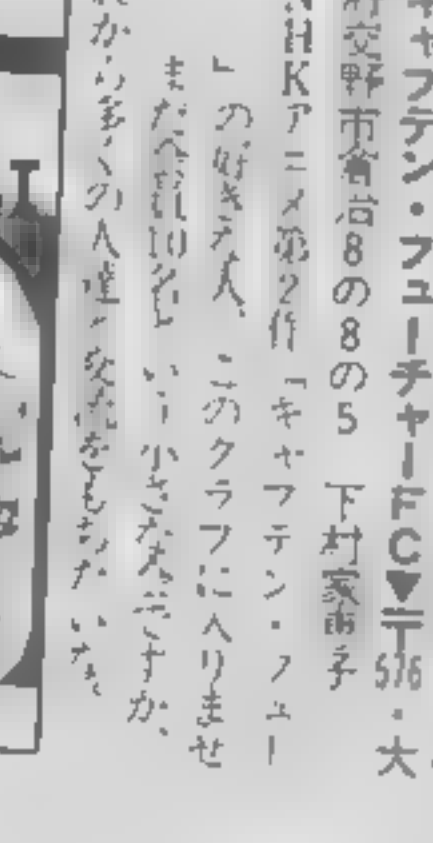 キャプテン・フューチャーFC▼〒576・大
交野市倉治8の8の5 下村家
NHKアニメ第2作「キャプテン・フュー
」の好きな人、このクラブに入りませ
まだ会員10名と いう小さなんですが、
多くの人達と交流をもちたいな